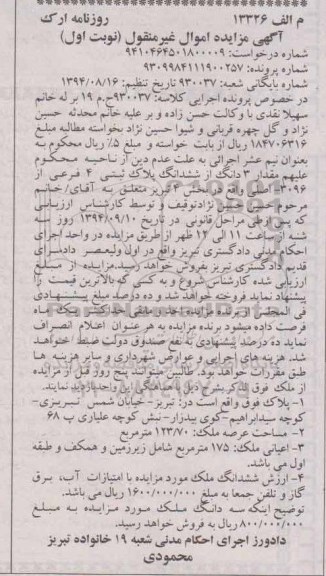 م الف ۱۳۳۲۶ روزنامه ارک
آگهی مزایده اموال غیرمنقول (نوبت اول)
شماره درخواست: ۹۴۱۰۴۶۴۵۰۱۸۰۰۰۰۹
شماره پرونده: ۹۳۰۹۹۸۴۱۱۱۹۰۰۲۵۷
شماره بایگانی شعبه: ۹۳۰۰۳۷ تاریخ تنظیم: ۱۳۹۴/۰۸/۱۶
در خصوص پرونده اجرایی کلاسه: ۹۳۰۰۳۷ح.م ۱۹ بر له خانم
سهیلا نقدی با وکالت حسن زاده و بر علیه خانم محدثه حسین
نژاد و گل چهره قربانی و شیوا حسین نژاد بخواسته مطالبه مبلغ
۱۸۴۷۰۶۳۱۶ ریال از بابت خواسته و مبلغ ۵٪ ریال محکوم به
بعنوان نیم عشر اجرائی به علت عدم دین از ناحیه محکوم
علیهم مقدار ۳ دانگ از ششدانگ پلاک ثبتی ۴ فرعی از
۳۰۹۶- اصلی واقع در بخش ۴ تبریز متعلق به آقای/خانم
مرحوم نژاد توقیف و توسط کارشناس ارزیابی
که پس از طی مراحل قانونی در تاریخ ۱۳۹۴/۰۹/۱۰ روز سه
شنبه از ساعت ۱۱ الی ۱۲ ظهر از طریق مزایده در واحد اجرای
احکام مدنی دادگستری تبریز واقع در اول ولیعصر دادسرای
قدیم دادگستری تبریز بفروش خواهد رسید. مزایده از مبلغ
ارزیابی شده کارشناس شروع و به کسی که بالاترین قیمت را
پیشنهاد نماید فروخته خواهد شد و ده درصد مبلغ پیشنهادی
فی المجلس از برنده مزایده اخذ و مابقی حداکثر یک ماه
فرصت داده میشود برنده مزایده به هر عنوان اعلام انصراف
نماید ده درصد پیشنهادی به نفع صندوق دولت ضبط خواهد
شد. هزینه های اجرایی و عوارض شهرداری و سایر هزینه ها
طبق مقررات خواهد بود. طالبین میتوانند پنج روز قبل از مزایده
از ملک فوق الذکر بشرح ذیل با هماهنگی این واحد بازدید نمایند.
۱- پلاک فوق واقع است در: تبریز- خیابان شمس تبریزی-
کوچه سیدابراهیم-کوی بیدزار-نبش کوچه علیاری پ ۶۸
۲- مساحت عرصه ملک: ۱۲۳/۷۰ مترمربع
۳- اعیانی ملک: ۱۷۵ مترمربع شامل زیرزمین و همکف و طبقه
اول می باشد.
۴- ارزش ششدانگ ملک مورد مزایده با امتیازات آب، برق
گاز و تلفن جمعا به مبلغ ۱۶۰۰/۰۰۰/۰۰۰ ریال می باشد.
توضیح اینکه سه دانگ ملک مورد مزایده به مبلغ
۸۰۰/۰۰۰/۰۰۰ ریال به فروش خواهد رسید.
دادورز اجرای احکام مدنی شعبه ۱۹ خانواده تبریز
محمودی